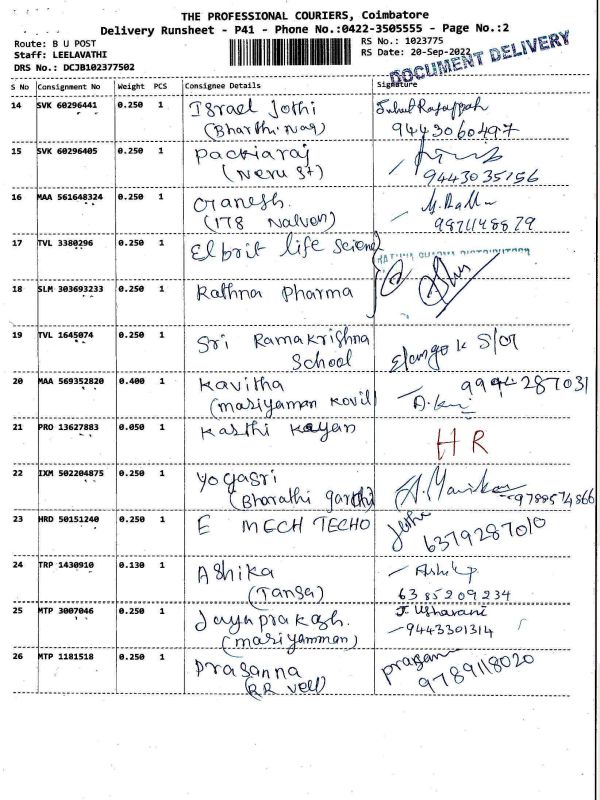 THE PROFESSIONAL COURIERS, Coimbatore
Delivery Runsheet - P41 - Phone No.:0422-3505555 - Page No.:2
Route: B U POST
RS No.: 1023775
Staff: LEELAVATHI
RS Date: 20-Sep-2022
DRS No.: DCJB102377502
DOCUMENT DELIVERY
S No Consignment No Weight PCS Consignee Details Signature
14 SVK 60296441 0.250 1 Israel Jothi
(Bharthi Nag) 9443060497
15 SVK 60296405 0.250 1 Packiaraj
(Neru St) 9443035156
16 MAA 561648324 0.250 1
(178 Nalvon) 9871148879
17 TVL 3380296 0.250 1 Elbrit life Scienc
18 SLM 303693233 0.250 1 Rathna Pharma
19 TVL 1645074 0.250 1 Sri Ramakrishna
School Elango k
20 MAA 569352820 0.400 1 Kavitha 9994287031
(Mariyaman Kovil)
21 PRO 13627883 0.050 1 Karthi Kayan HR
22 IXM 502204875 0.250 1 Yogasri
(Bharathi gandhi) 9788574866
23 HRD 50151240 0.250 1 E MECH TECHO
6379287010
24 TRP 1430910 0.130 1 Ashika
(Tansa) 6385209234
25 MTP 3007046 0.250 1 Jayaprakash. J. Usharani
(mariyamman) 9443301314
26 MTP 1181518 0.250 1 Prasanna prasan
(RR vell) 9789118020